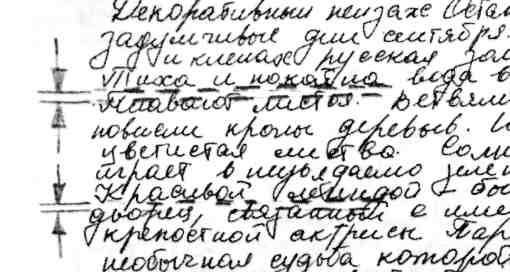 Декоративный пейзаж Остан
задумчивые дни сентября.
и кленах русская зол
Тиха и покойна вода в
плавают листья. Ветвями
повисли кроны деревьев. И
цветистая листва. Солн
играет в изъедаемо зелен
Красивой легендой - был
дворец, связанный с име
крепостной актрисы Пар
необычная судьба которой